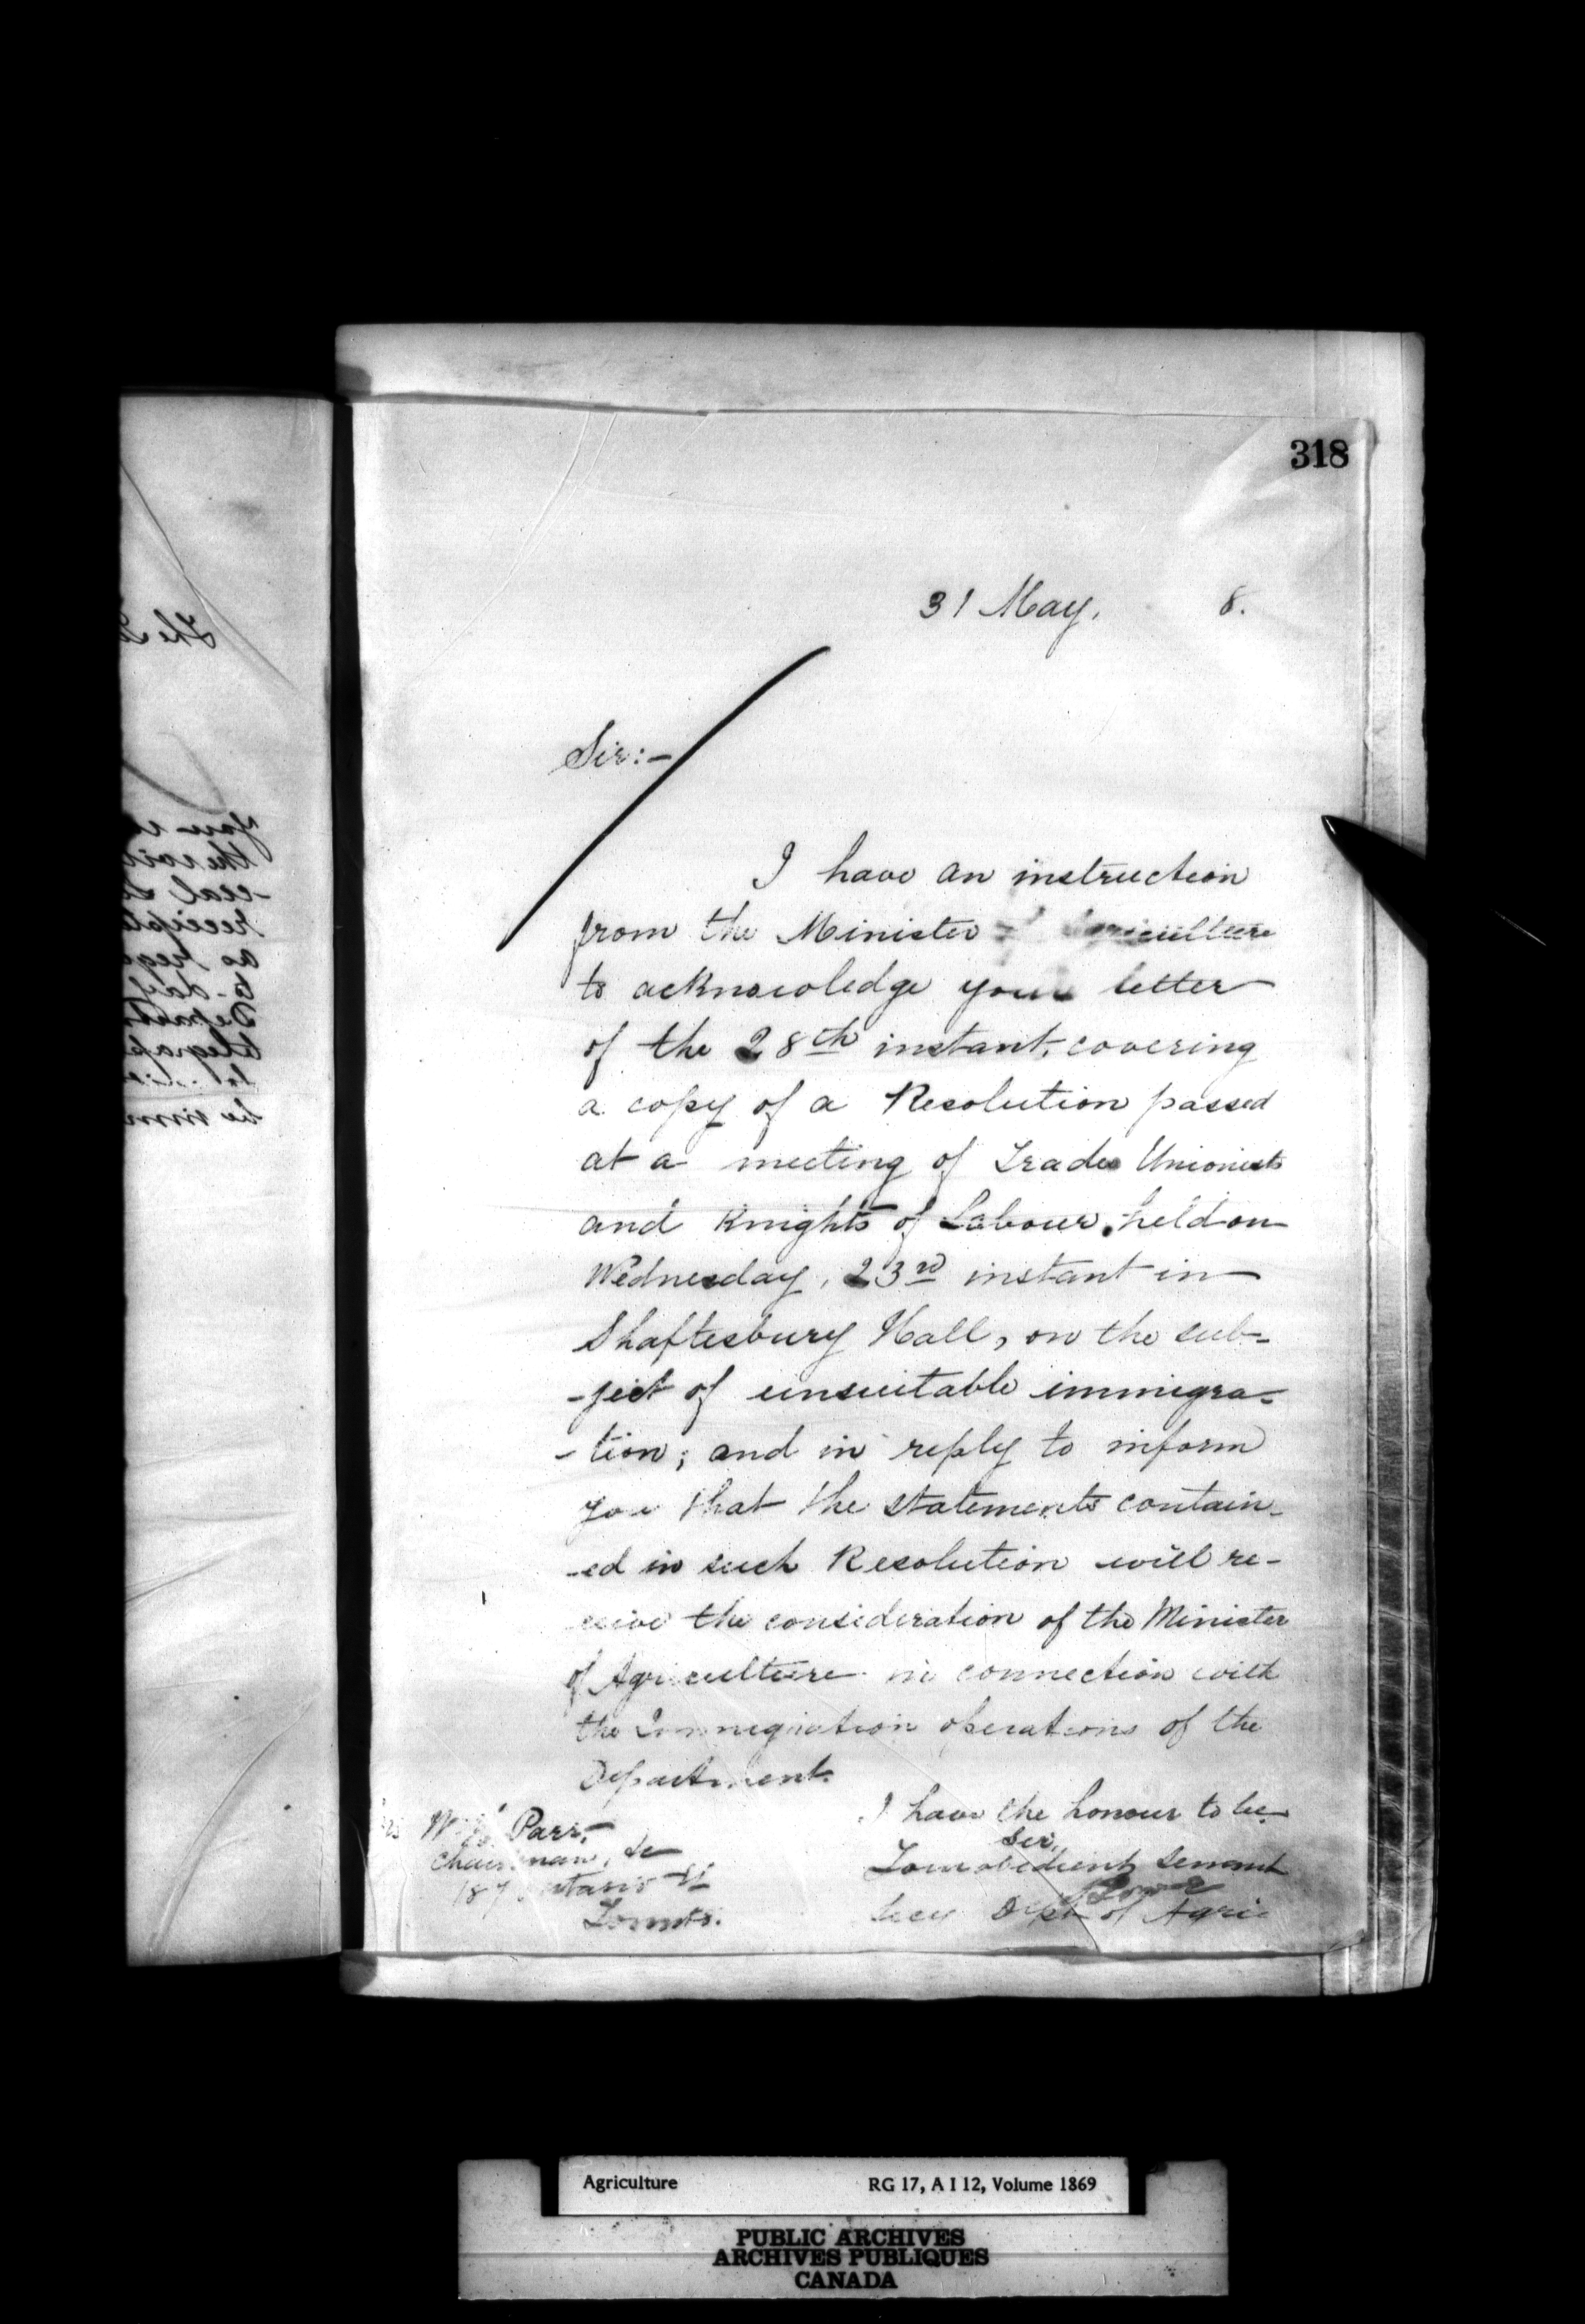 318
31 May, 8.
Sir:-
I have an instruction
from the Minister of Agriculture
to acknowledge your letter
of the 28th instant, covering
a copy of a Resolution passed
at a meeting of Trades Unionists
and Knights of Labour, held on
Wednesday, 23rd instant in
Shaftesbury Hall, on the sub-
-ject of unsuitable immigra-
-tion; and in reply to inform
you that the statements contain-
-ed in such Resolution will re-
ceive the consideration of the Minister
of Agriculture in connection with
the Immigration operations of the
Department.
I have the honour to be
Sir,
Your obedient servant
J Lowe
Secy Dept of Agric
Parr,
Chairman, &c
187 Ontario St
Toronto.
The
you
the
-ceal
receipt
as reg
to-day
Depart
telegraph
be imm
Agriculture RG 17, A I 12, Volume 1869
PUBLIC ARCHIVES
ARCHIVES PUBLIQUES
CANADA